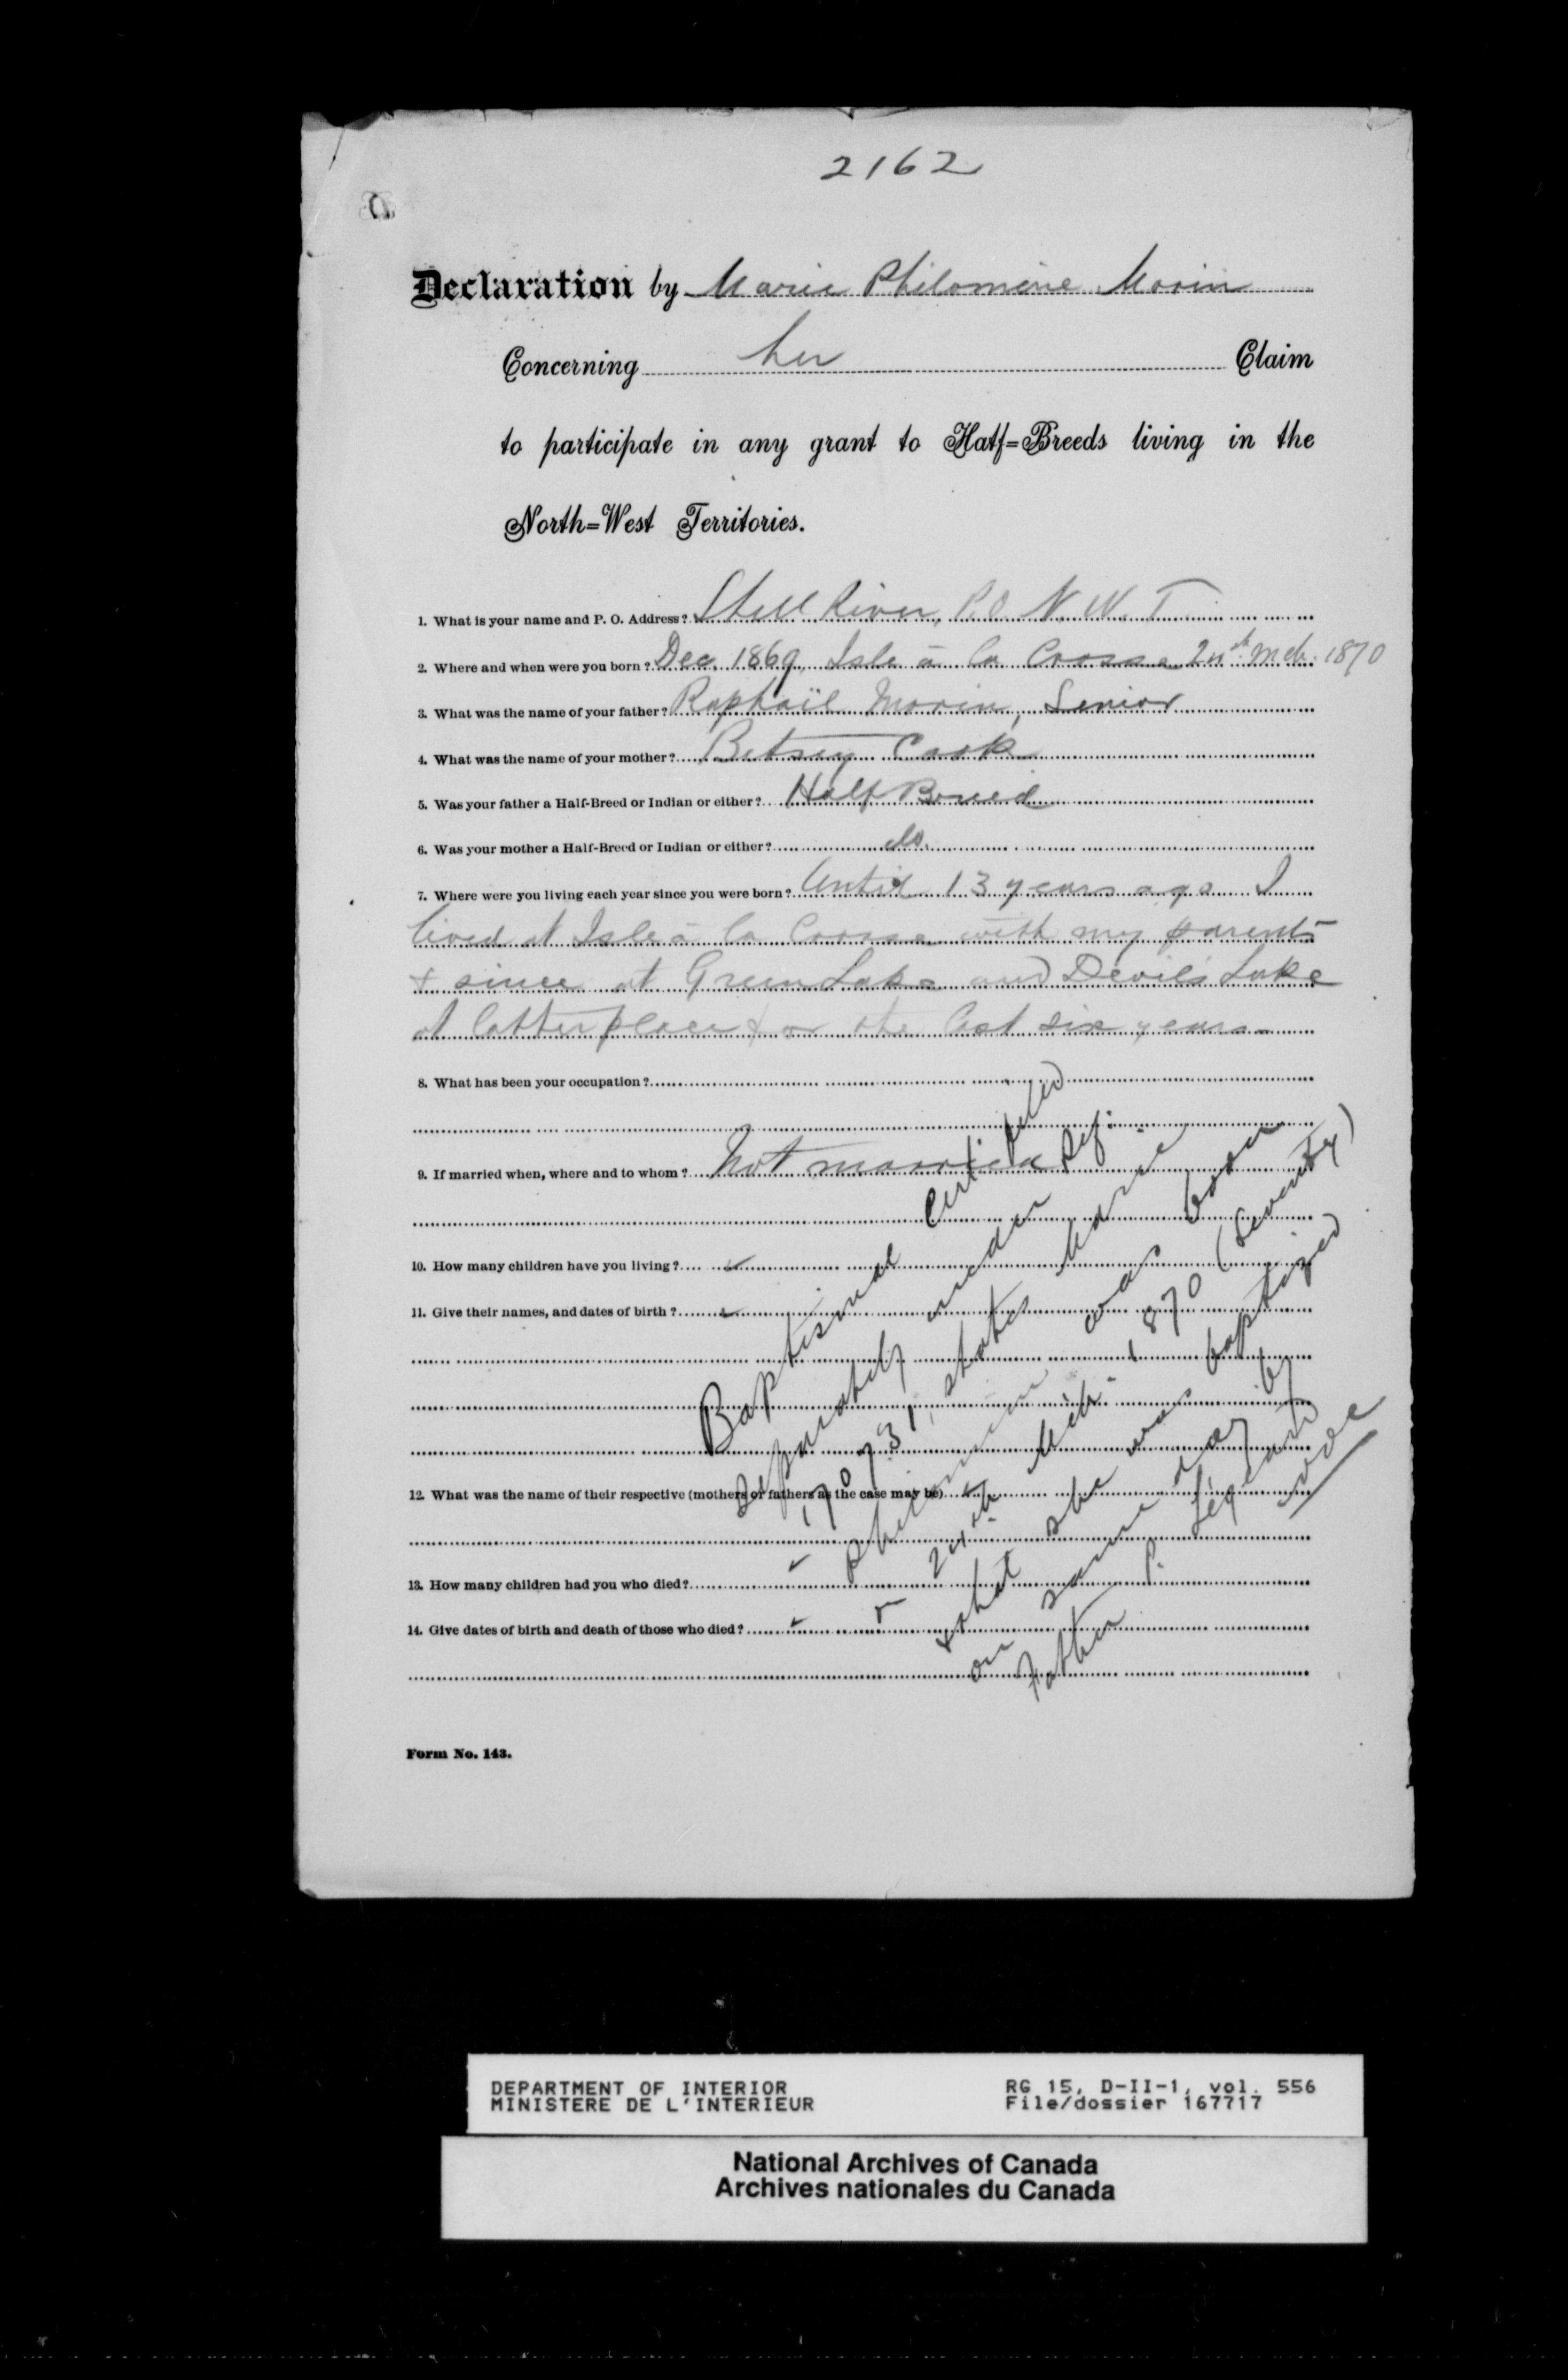 2162
Declaration by Marie Philomène Morin
Concerning her Claim
to participate in any grant to Half=Breeds living in the
North=West Territories.
1. What is your name and P. O. Address? Shell River, P.O. N. W. T
2. Where and when were you born? Dec. 1869, Isle à la Crosse 24th Mch. 1870
3. What was the name of your father? Raphaïl Morin, Senior
4. What was the name of your mother? Betsey Cook
5. Was your father a Half-Breed or Indian or either? Half Breed
6. Was your mother a Half-Breed or Indian or either? do.
7. Where were you living each year since you were born? Until 13 years ago I
lived at Isle à la Crosse with my parents
& since at Green Lake and Devil's Lake
at latter place for the last six years.
8. What has been your occupation?
9. If married when, where and to whom? Not married
10. How many children have you living?
11. Give their names, and dates of birth?
12. What was the name of their respective (mothers or fathers as the case may be)
13. How many children had you who died?
14. Give dates of birth and death of those who died?
Baptismal Certif. filed
separately under Ref.
170731, states Marie
Philomène was born
24th Mch. 1870 (seventy)
& that she was baptized
on same day by
Father P. Legeard
Form No. 143.
DEPARTMENT OF INTERIOR
MINISTERE DE L'INTERIEUR
RG 15, D-II-1, vol. 556
File/dossier 167717
National Archives of Canada
Archives nationales du Canada